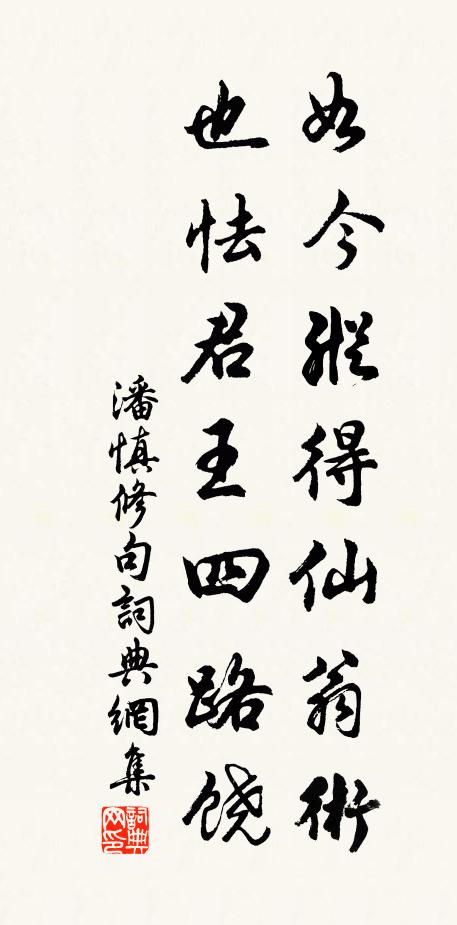 如今縱得仙翁術
也怯君王四路饒
潘慎修句詞典網集
詞典网印